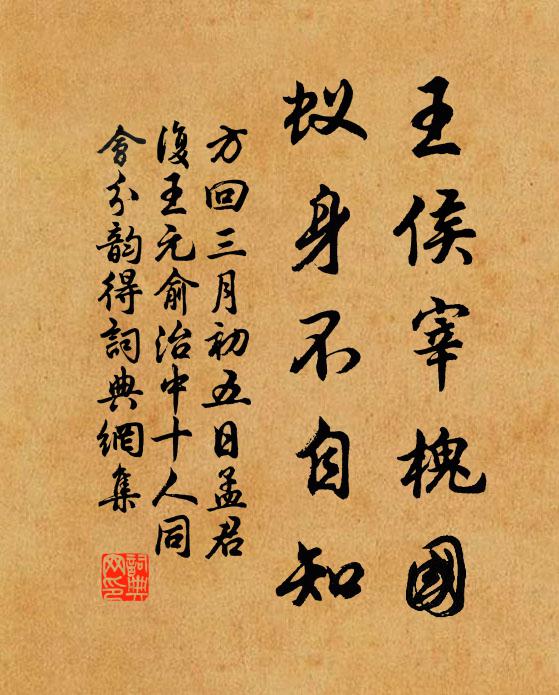 王侯宰槐國
蚁身不自知
方回三月初五日孟君
復王元俞治中十人同
會分韵得詞典網集
詞典网印